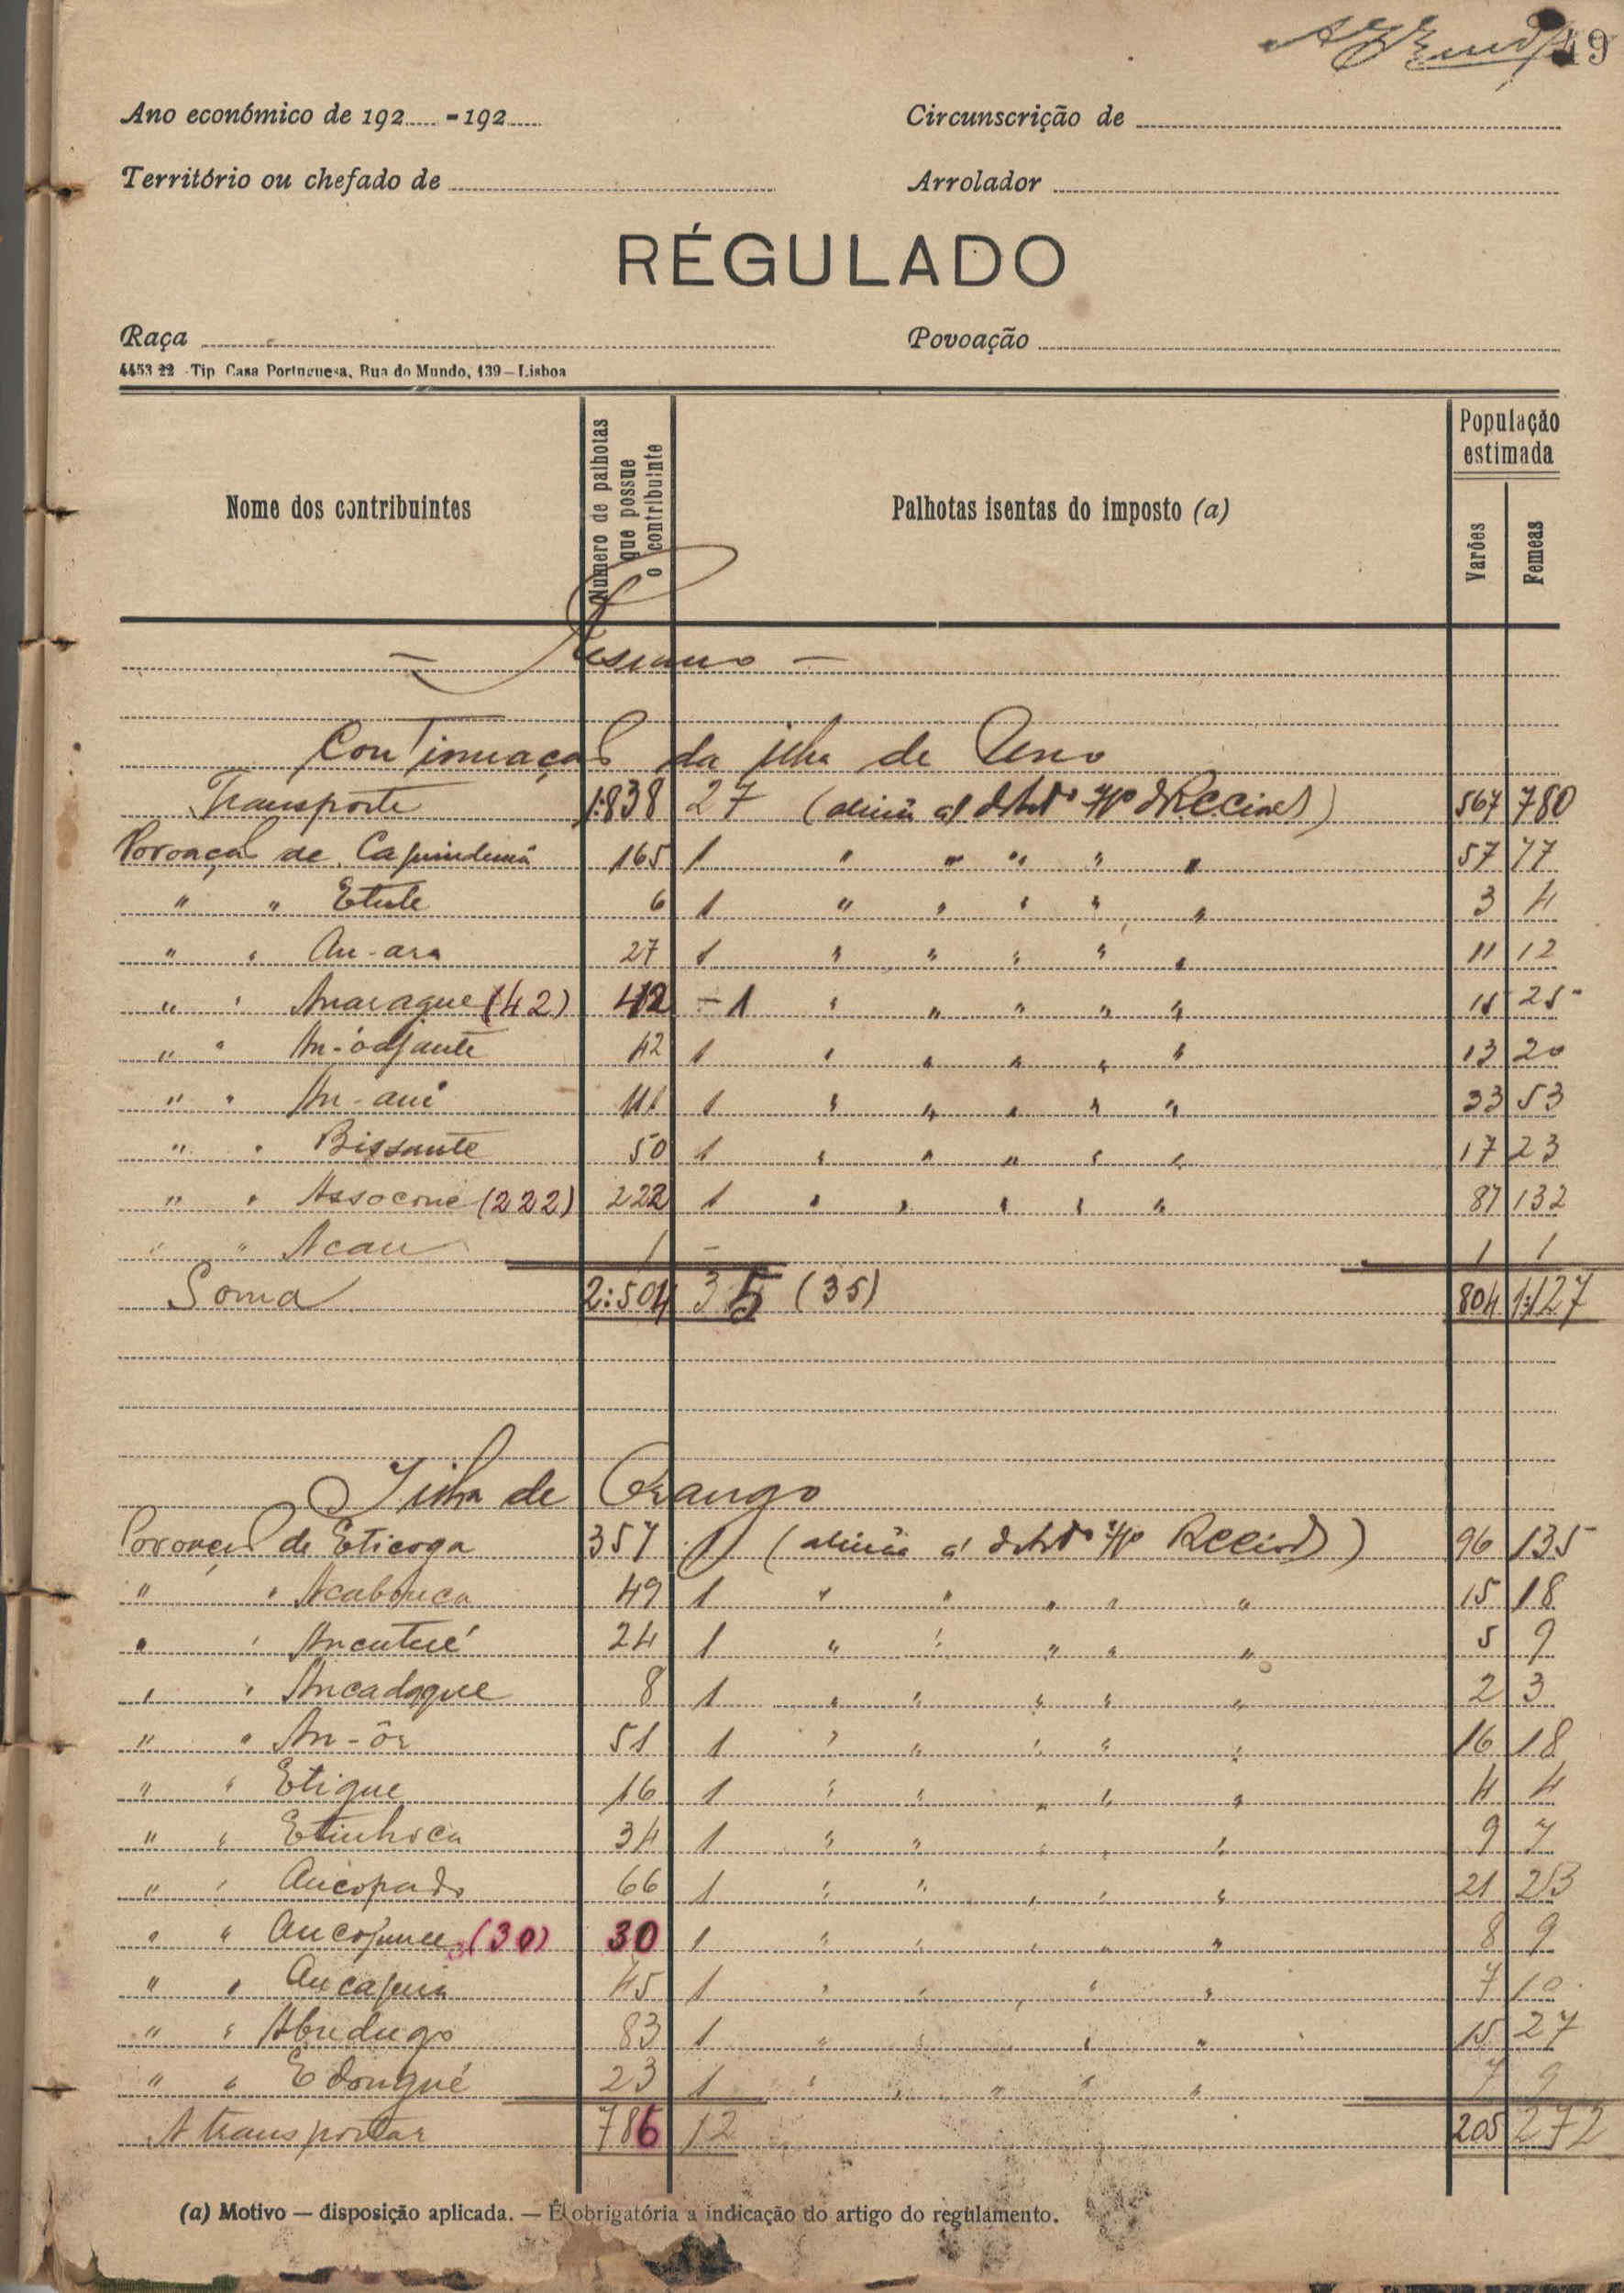 49
Ano económico de 192 - 192
Circunscrição de
Território ou chefado de
Arrolador
RÉGULADO
Raça
Povoação
4453 22 - Tip. Casa Portuguesa, Rua do Mundo, 139 — Lisboa
Nome dos contribuintes
Número de palhotas que possue o contribuinte
Palhotas isentas do imposto (a)
População estimada
Varões
Femeas
— Resumo —
Continuação da ilha de Uno
Transporte 1:838 27 567 780
Povoação de 165 1 " " " " " 57 77
" " Etute 6 1 " " " " " 3 4
" " An-ara 27 1 " " " " " 11 12
" " Anaraque (42) 42 - 1 " " " " " 25
" " An-ódjante 42 1 " " " " " 13 20
" " An-aui 1 " " " " " 53
" " Bissante 50 1 " " " " " 17 23
" " Assoconé (222) 222 1 " " " " " 87 132
" " Acau 1 - 1 1
Soma 2:504 35 (35) 804 1:127
Ilha de Orango
Povoação de Eticoga 357 1 96 135
" " Acabouca 49 1 " " " " " 15 18
" " Ancutué 24 1 " " " " " 5 9
" " Ancadaque 8 1 " " " " " 2 3
" " An-ôr 51 1 " " " " " 16 18
" " Etigue 16 1 " " " " " 4 4
" " Etinhoca 34 1 " " " " " 9 7
" " Ancopado 66 1 " " " " " 21 23
" " (30) 30 1 " " " " " 8 9
" " 45 1 " " " " " 7 10
" " Abudugo 83 1 " " " " 15 27
" " Edongué 23 1 " " " " " 7 9
A transportar 786 12 205 272
(a) Motivo — disposição aplicada. — É obrigatória a indicação do artigo do regulamento.